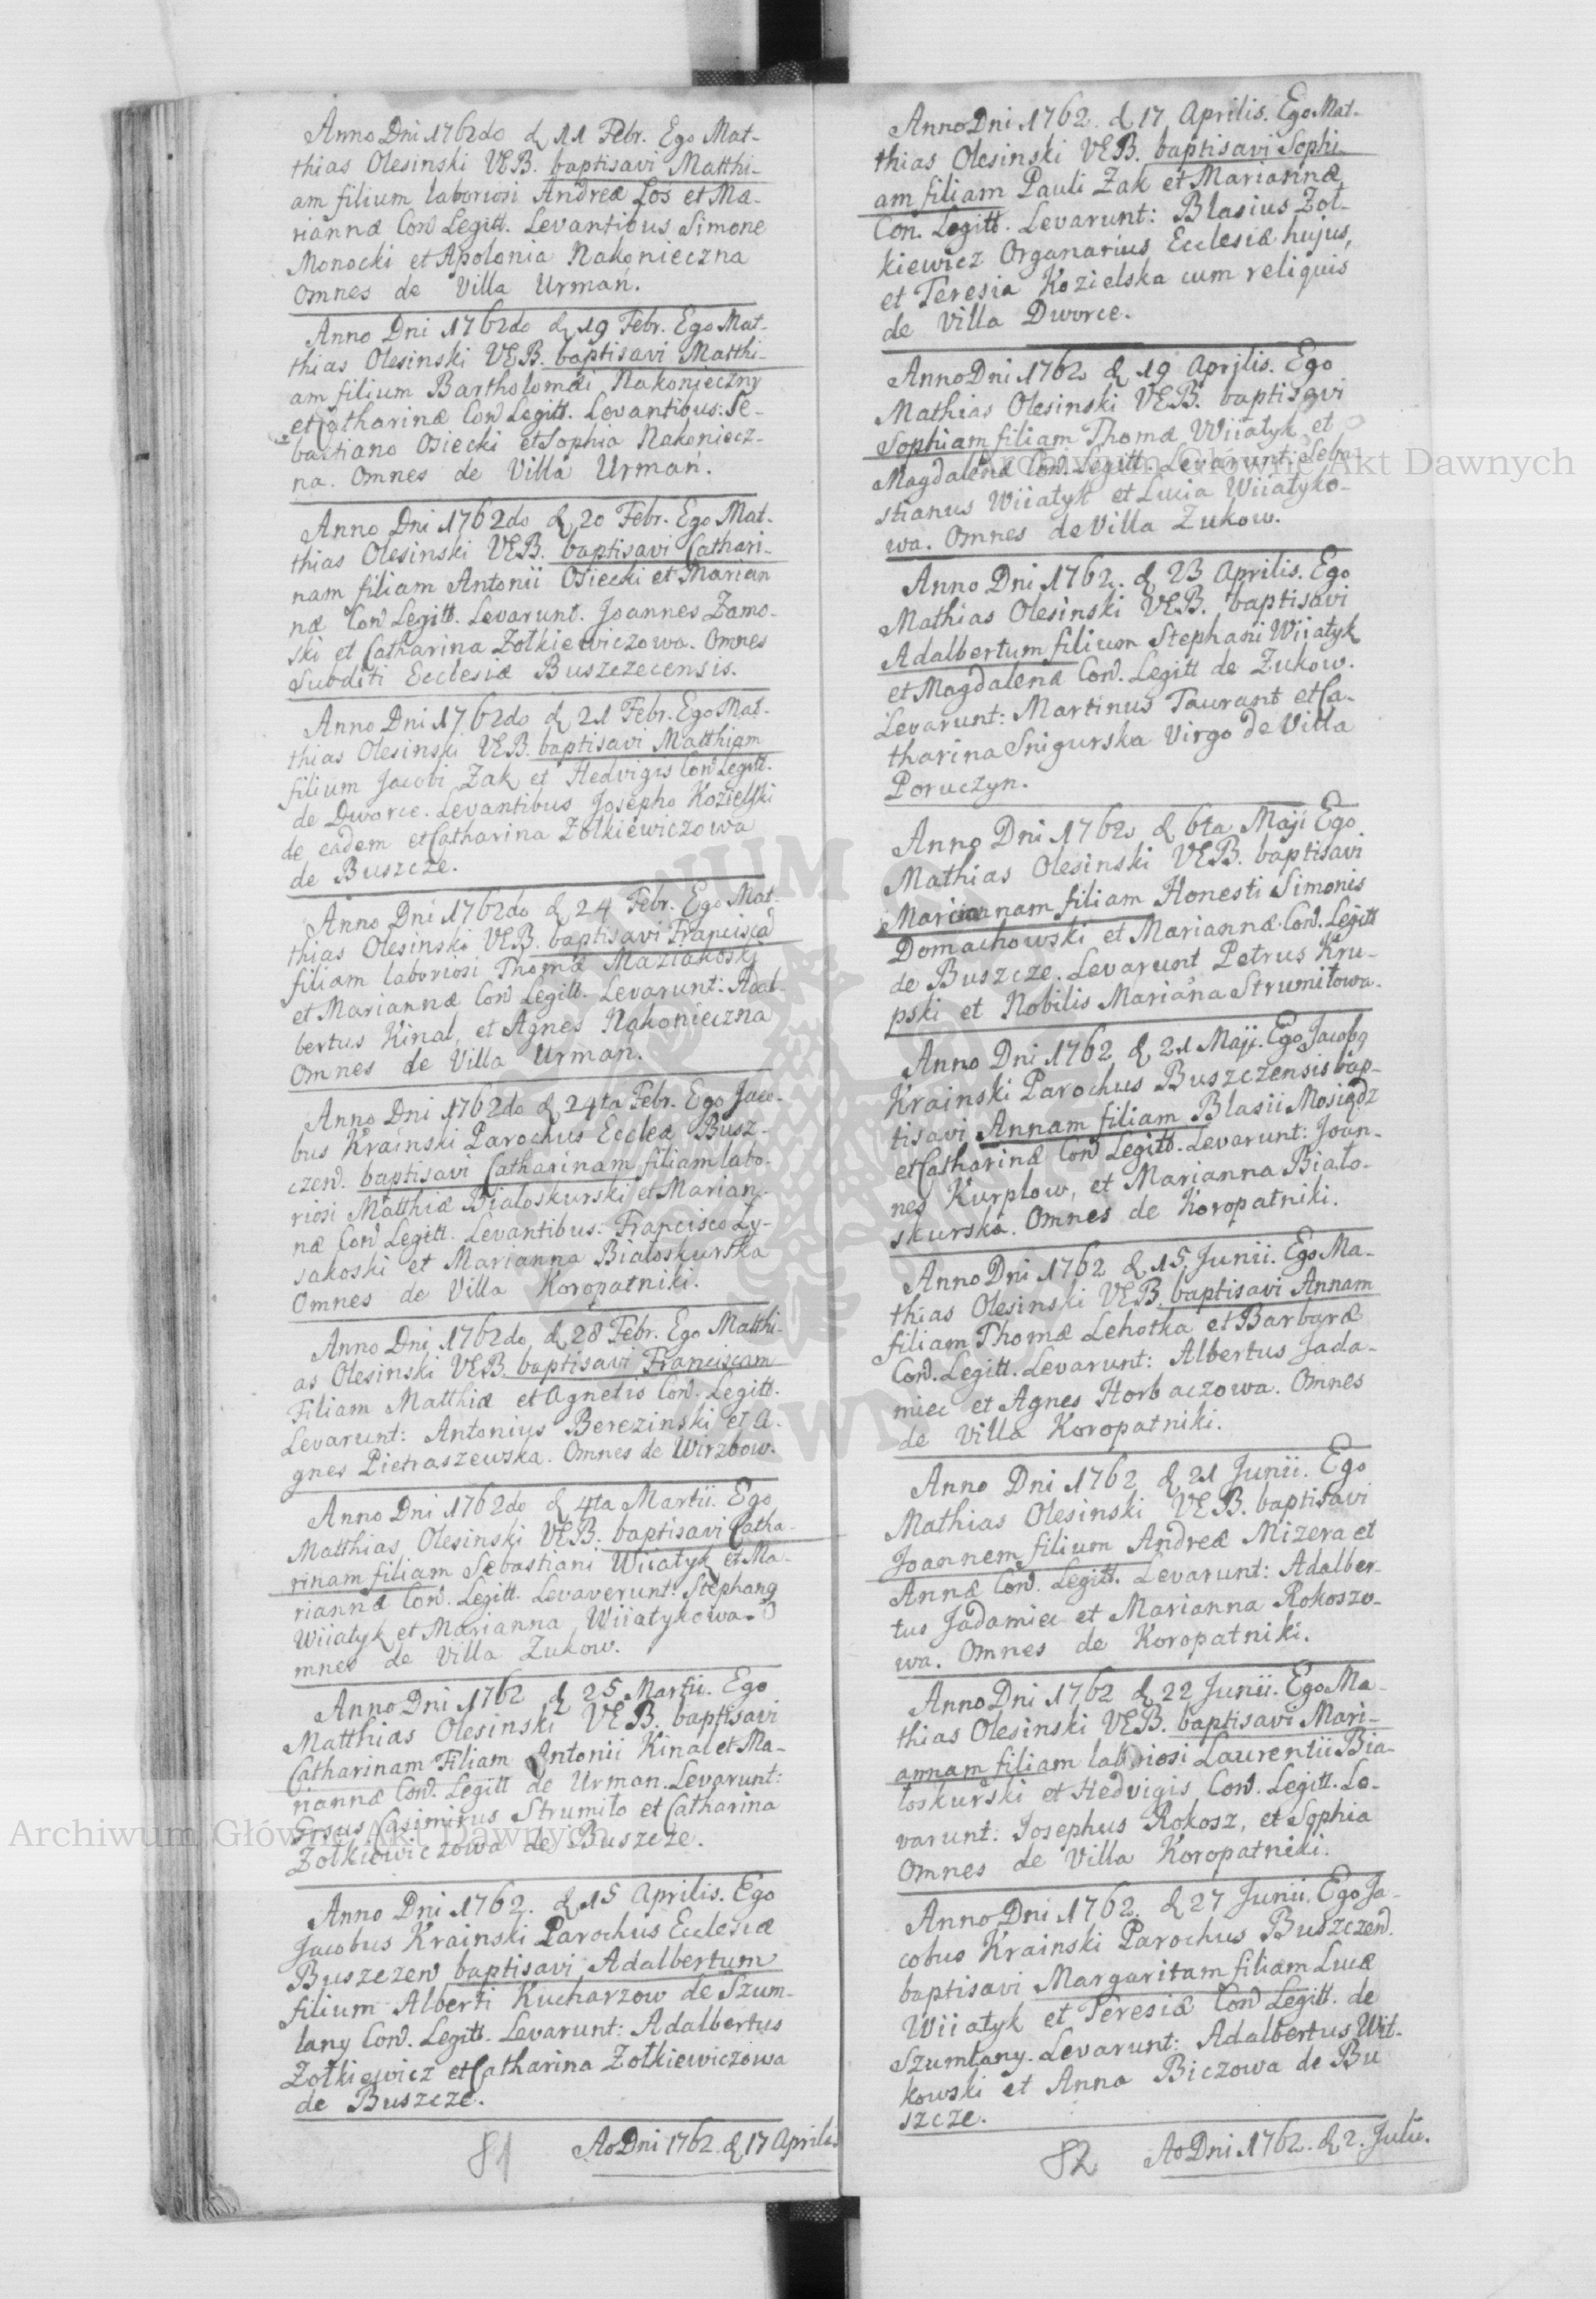 Anno Dni 1762do d 11 Febr. Ego Mat-
thias Olesinski VEB. baptisavi Matthi-
am filium laboriosi Andreæ Łos et Ma-
riannæ Con Legitt. Levantibus Simone
Monocki et Apolonia Nakonieczna
Omnes de Villa Urmań.
Anno Dni 1762do d 19 Febr. Ego Mat-
thias Olesinski VEB. baptisavi Matthi-
am filium Bartholomæi Nakonieczny
et Catharinæ Con Legitt. Levantibus: Se-
bastiano Osiecki et Sophia Nakoniecz-
na. Omnes de Villa Urmań.
Anno Dni 1762do d 20 Febr. Ego Mat-
thias Olesinski VEB. baptisavi Cathari-
nam filiam Antonii Osiecki et Marian
næ Con Legitt. Levarunt. Joannes Zamo-
ski et Catharina Zołkiewiczowa. Omnes
Subditi Ecclesiæ Buszczecensis.
Anno Dni 1762do d 21 Febr. Ego Mat-
thias Olesinski VEB. baptisavi Matthiam
filium Jacobi Zak et Hedvigis Con Legitt.
de Dworce. Levantibus Josepho Kozielski
de eadem et Catharina Zołkiewiczowa
de Buszcze.
Anno Dni 1762do d 24 Febr. Ego Mat-
thias Olesinski VEB. baptisavi Franciscā
filiam laboriosi Thomæ Maziakoski
et Mariannæ Con Legitt. Levarunt: Adal-
bertus Kinal, et Agnes Nakonieczna
Omnes de Villa Urman.
Anno Dni 1762do d 24ta Febr. Ego Jaco-
bus Krainski Parochus Eccleæ Busz-
czen. baptisavi Catharinam filiam labo-
riosi Matthiæ Białoskurski et Marian-
næ Con Legitt. Levantibus: Francisco Ły-
sakoski et Marianna Białoskurska
Omnes de Villa Koropatniki.
Anno Dni 1762do d 28 Febr. Ego Matthi-
as Olesinski VEB. baptisavi Franciscam
Filiam Matthiæ et Agnetis Con. Legitt.
Levarunt: Antonius Berezinski et A-
gnes Pietraszewska. Omnes de Wirzbow.
Anno Dni 1762do d 4ta Martii. Ego
Matthias Olesinski VEB. baptisavi Catha-
rinam filiam Sebastiani Wiiatyk et Ma-
riannæ Con. Legitt. Levaverunt: Stephang
Wiiatyk et Marianna Wiiatykowa. O
mnes de Villa Zukow.
Anno Dni 1762 d 25 Martii. Ego
Matthias Olesinski VEB. baptisavi
Catharinam Filiam Antonii Kinal et Ma-
riannæ Con. Legitt de Urman. Levarunt:
Grsus Casimirus Strumiło et Catharina
Zołkiewiczowa de Buszcze.
Anno Dni 1762. d 15 Aprilis. Ego
Jacobus Krainski Parochus Ecclesiæ
Buszczen baptisavi Adalbertum
filium Alberti Kucharzow de Szum-
lany Con. Legitt. Levarunt: Adalbertus
Zołkiewicz et Catharina Zołkiewiczowa
de Buszcze.
81 Ao Dni 1762. d 17 Aprilis
Anno Dni 1762. d 17 Aprilis. Ego Mat-
thias Olesinski VEB. baptisavi Sophi-
am filiam Pauli Zak et Mariannæ
Con. Legitt. Levarunt: Blasius Zoł-
kiewicz Organarius Ecclesiæ hujus,
et Teresia Kozielska cum reliquis
de Villa Dworce.
Anno Dni 1762 d 19 Aprilis. Ego
Mathias Olesinski VEB. baptisavi
Sophiam filiam Thomæ Wiiatyk et
Magdalenæ Con. Legitt. Levarunt: Seba-
stianus Wiiatyk et Lucia Wiiatyko-
wa. Omnes de Villa Zukow.
Anno Dni 1762. d 23 Aprilis. Ego
Mathias Olesinski VEB. baptisavi
Adalbertum filium Stephani Wiiatyk
et Magdalenæ Con. Legitt de Zukow.
Levarunt: Martinus Taurant et Ca-
tharina Snigurska Virgo de Villa
Poruczyn.
Anno Dni 1762 d 6ta Maji Ego
Mathias Olesinski VEB. baptisavi
Mariannam filiam Honesti Simonis
Domachowski et Mariannæ Con. Legitt
de Buszcze. Levarunt Petrus Kru-
pski et Nobilis Mariana Strumiłowa.
Anno Dni 1762 d 21 Maji. Ego Jacobg
Krainski Parochus Buszczensis bap-
tisavi Annam filiam Blasii Mosiądz
et Catharinæ Con Legitt. Levarunt: Joan-
nes Kurplow, et Marianna Biało-
skurska. Omnes de Koropatniki.
Anno Dni 1762 d 15 Junii. Ego Ma-
thias Olesinski VEB. baptisavi Annam
filiam Thomæ Lehotka et Barbaræ
Con. Legitt. Levarunt: Albertus Jada-
miec et Agnes Horbaczowa. Omnes
de Villa Koropatniki.
Anno Dni 1762 d 21 Junii. Ego
Mathias Olesinski VEB. baptisavi
Joannem filium Andreæ Mizera et
Annæ Con. Legitt. Levarunt: Adalber-
tus Jadamiec et Marianna Rokoszo-
wa. Omnes de Koropatniki.
Anno Dni 1762 d 22 Junii. Ego Ma-
thias Olesinski VEB. baptisavi Mari-
annam filiam laboriosi Laurentii Bia-
łoskurski et Hedvigis Con. Legitt. Le-
varunt: Josephus Rokosz, et Sophia
Omnes de Villa Koropatniki.
Anno Dni 1762. d 27 Junii. Ego Ja-
cobus Krainski Parochus Buszczen.
baptisavi Margaritam filiam Lucæ
Wiiatyk et Teresiæ Con Legitt. de
Szumlany. Levarunt: Adalbertus Wit-
kowski et Anna Biczowa de Bu
szcze.
82 Ao Dni 1762. d 2. Julii.
Archiwum Główne Akt Dawnych
Archiwum Główne Akt Dawnych